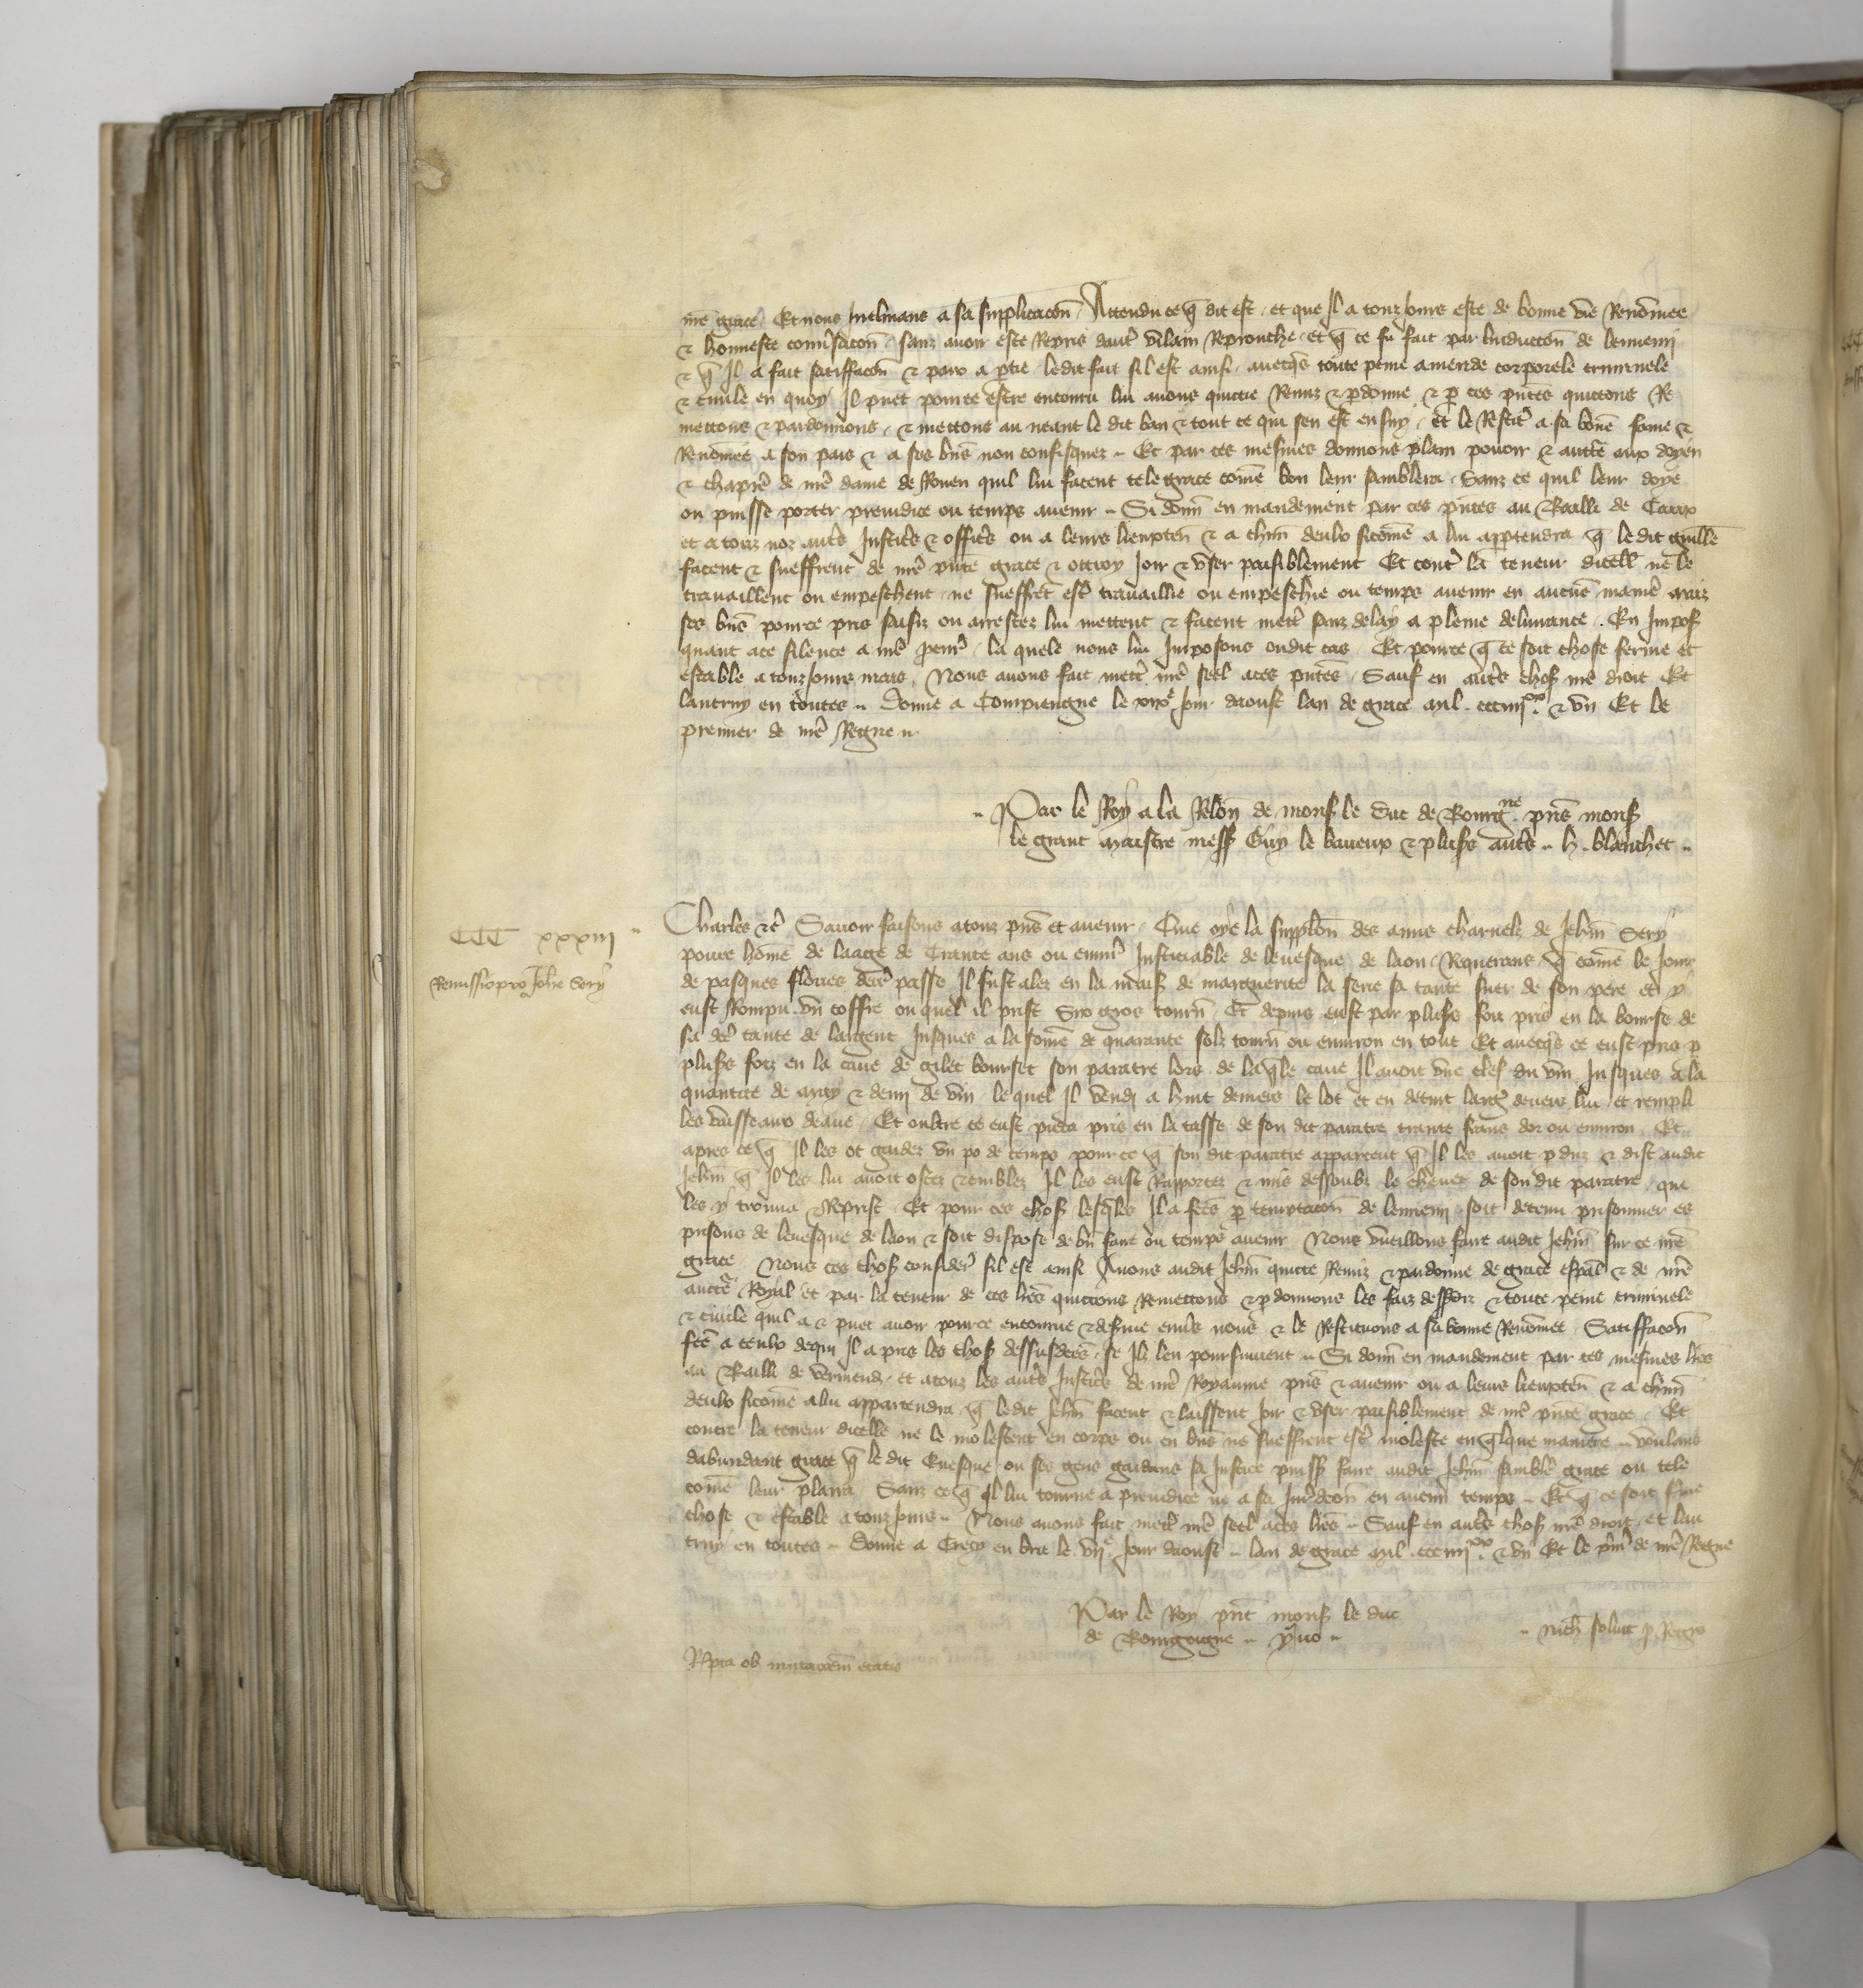 nre grace. Et nous inclinans a sa supplicacon. Attendu ce q dit est. et que Il a touz Jours este de bonne vie Renomee
& honneste conusacon. sanz auoir este Repris dautre vilain Reprouche. et q ce fu fait par Induccon de lennemi
& q Il a fait satiffacon & paix a ptie. ledit fait sil est ainsi. auecqs toute peine amende corporele criminele
& ciuile en quoy Il puet pource estre encouru lui auons quicte Remiz & pdonne. & p ces pntes quictons Re
mettons & pardonnons. & mettons au neant le dit ban & tout ce qui sen est ensuy. et le Restit a sa bone fame &
Renomee a son pais & a ses bns non confisquez. Et par ces mesmes donnons plain pouoir & aucte aux doyen
& chapre de nre dame de Rouen quil lui facent tele grace come bon leur samblera. Sanz ce quil leur doye
ou puisse porter preiudice ou temps auenir. Si donn en mandement par ces pntes au Bailli de Caux
et a touz noz autrs Justicrs & officrs ou a leurs lieuxten & a chun deulx sicome a lui apptendra q le dit Guille
facent & sueffrent de nre pnte grace & ottroy Joir & vser paisiblement Et contr la teneur dicelle ne le
trauaillent ou empeschent. ne sueffret estr trauaillie ou empeschie ou temps auenir en aucune manre maiz
ses bns pource pris saisiz ou arrestez lui mettent & facent mettr sanz delay a pleine deliurance. En Impos
quant a ce silence a nre pcur. la quele nous lui Imposons oudit cas. Et pource q ce soit chose ferme et
estable a touzJours mais. Nous auons fait mettr nre seel a ces pntes. Sauf en autrs chos nre droit Et
lautruy en toutes. Donne a Compiengne le xixe Jour daoust lan de grace mil. ccc iiijxx & vn Et le
premier de nre Regne

Par le Roy a la Relon de mons le duc de Bourgne pns mons
le grant maistre mess Guy le baueux & plus autrs. h. blanchet

CCC xxxiij
Remissio pro Johe Sery
Charles &c Sauoir faisons a touz pns et auenir. Que oye la supplon des amis charnelz de Jehan Sery
poure home de laage de Trante ans ou enuir Justiciable de leuesque de laon. Requerans q come le Jour
de pasques flories derr passe Il fust alez en la mais de marguerite la serie sa tante suer de son pere et y
eust Rompu vn coffre ouquel il prist gros tourn. Et depuis eust par plus foiz pris en la bourse de
sa dce tante de largent Jusques a la some de quarante solz tourn ou enuiron en tout Et auecqs ce eust pris p
plus foiz en la caue de gilet bourset son paratre lors. de laqle caue Il auoit vne clef du vin Jusques a la
quantite de muy & demi de vin. lequel Il vendi a huit deniers le lot et en detint largt deuers lui et rempli
les vaisseaux deaue. Et oultre ce eust pieca pris en la tasse de son dit paratre trante frans dor ou enuiron. Et
apres ce q Il les ot gardez vn po de temps pour ce q son dit paratre appercent q Il les auoit pduz & dist audit
Jehan q Il les lui auoit ostez & emblez Il les eust Rapportez & mis dessoubz le cheuet de son dit paratre. qui
les y trouua & Reprist. Et pour ces chos lesqles Il a fces p temptacon de lennemi. soit detenu prisonnier es
prisons de leuesque de laon & soit dispose de bn faire ou temps auenir. Nous vueillons faire audit Jehan sur ce nre
grace. Nous ces chos consider sil est ainsi Auons audit Jehan quicte Remiz & pardonne de grace espal & de nre
aucte Royal et par la teneur de ces lres quictons Remettons & pdonnons les faiz dessdiz & toute peine criminele
& ciuile quil a & puet auoir pource encourue & desseruie enuers nous & le Restituons a sa bonne Renomee. Satiffacon
fce a ceulx dequi Il a pris les chos dessusdces. se Ilz len poursuiuent. Si donn en mandement par ces mesmes lres
au Bailli de vermend. et a touz les autrs Justicrs de nre Royaume pns & auenir ou a leurs lieuxten & a chun
deulx sicome a lui appartendra q le dit Jehan facent & laissent Joir & vser paisiblement de nre pnte grace. Et
contre la teneur dicelle ne le molestent en corps ou en bns ne sueffrent estr moleste en qlque maniere. voulans
dabundant grace q le dit Euesque ou ses gens gardans sa Justice puiss faire audit Jehan samble grace ou tele
come leur plaira. Sanz ce q Il lui tourne a preiudice ne a sa Jurdcon en auenir temps. Et q ce soit ferme
chose & estable a touz jours. Nous auons fait mettr nre seel a ces lres. Sauf en autrs chos nre droit. et lau
truy en toutes. Donne a Crecy en brie le vije Jour daoust. lan de grace mil. ccc iiijxx & vn Et le pmr de nre Regne

Par le Roy pnt mons le duc
de Bourgoigne. yuo
nich soluit p Regro
Rpta ob mutacoem etatis